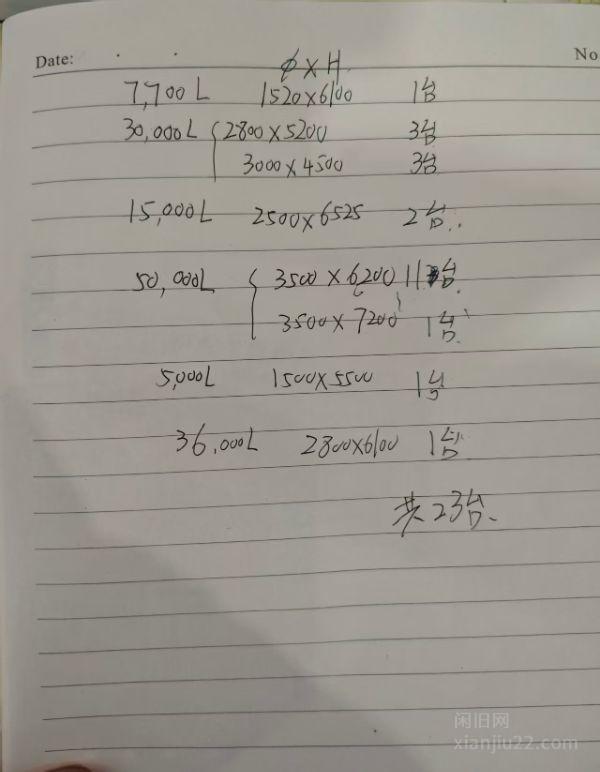 Date:
No
φ×H
7,700L 1520×6100 1台
30,000L 2800×5200 3台
3000×4500 3台
15,000L 2500×6525 2台.
50,000L 3500×6200 11台.
3500×7200 1台.
5,000L 1500×5500 1台
36,000L 2800×6100 1台
共23台.
闲旧网
xianjiu22.com